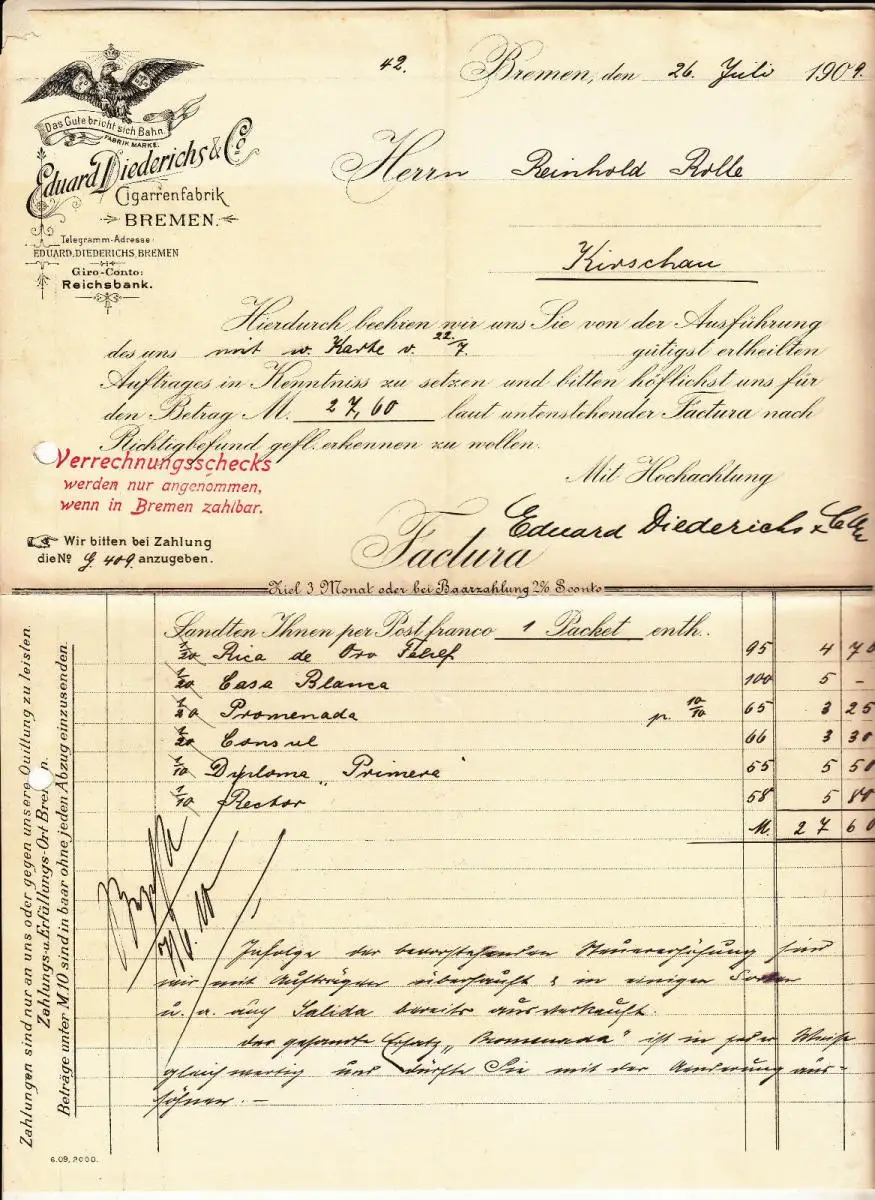 42.
Bremen, den 26. Juli 1909.
Das Gute bricht sich Bahn.
FABRIK MARKE.
Eduard Diederichs & Co
Cigarrenfabrik
BREMEN.
Telegramm-Adresse:
EDUARD, DIEDERICHS, BREMEN
Giro-Conto:
Reichsbank.
Herrn Reinhold Rolle
Kirschau
Hierdurch beehren wir uns Sie von der Ausführung
des uns mit w. Karte v. 22./7. gütigst ertheilten
Auftrages in Kenntniss zu setzen und bitten höflichst uns für
den Betrag M. 27,60 laut untenstehender Factura nach
Richtigbefund gefl. erkennen zu wollen.
Mit Hochachtung
Eduard Diederichs & Co
Verrechnungsschecks
werden nur angenommen,
wenn in Bremen zahlbar.
Wir bitten bei Zahlung
die No G. 409. anzugeben.
Factura
Ziel 3 Monat oder bei Baarzahlung 2% Sconto
Sandten Ihnen per Post franco 1 Packet enth..
1/20 Rica de Oro 95 4 70
1/20 Casa Blanca 100 5 -
1/20 Promenada p. 10/10 65 3 25
1/20 Consul 66 3 30
1/10 Diploma "Primera" 55 5 50
1/10 Rector 58 5 80
M. 27 60
Infolge der bevorstehenden Steuererhöhung sind
wir mit Aufträgen überhäuft & in einigen Sorten
u. a. auch Salida bereits ausverkauft.
Der gesandte Ersatz „Promenada" ist in jeder Weise
gleichwertig und dürfte Sie mit der Aenderung aus-
söhnen. -
Zahlungen sind nur an uns oder gegen unsere Quittung zu leisten.
Zahlungs- u. Erfüllungs-Ort Bremen.
Beträge unter M. 10 sind in baar ohne jeden Abzug einzusenden.
6.09, 2000.